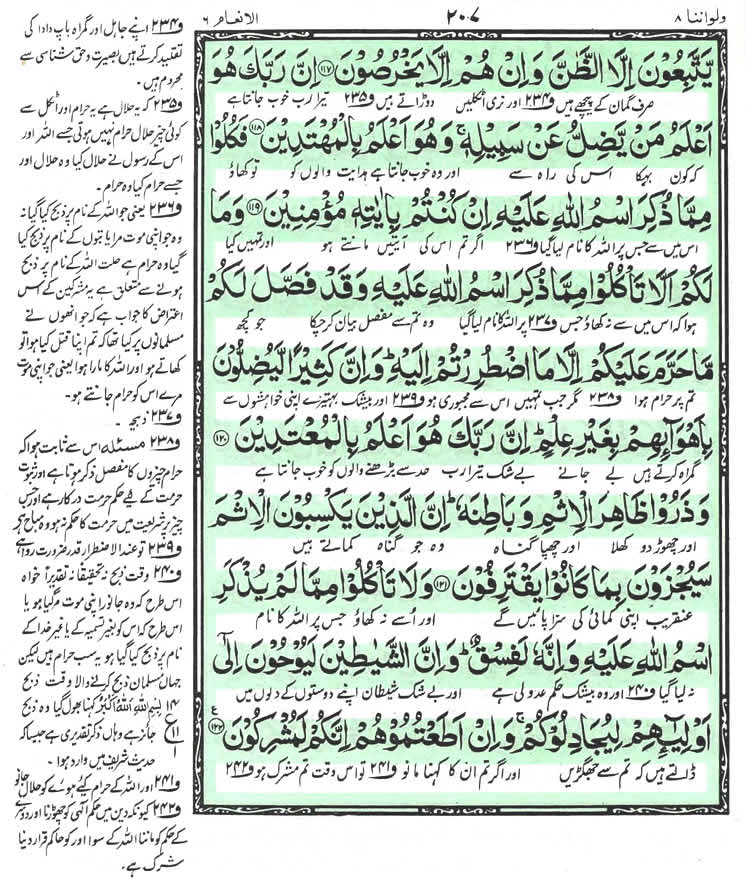 ولواننا ۸
۲۰۷
الانعام ۶
يَتَّبِعُوْنَ اِلَّا الظَّنَّ وَاِنْ هُمْ اِلَّا يَخْرُصُوْنَ ۱۱۷ اِنَّ رَبَّكَ هُوَ
صرف گمان کے پیچھے ہیں و۲۳۴ اور نری اٹکلیں دوڑاتے ہیں و۲۳۵ تیرا رب خوب جانتا ہے
اَعْلَمُ مَنْ يَّضِلُّ عَنْ سَبِيْلِهٖ ۚ وَهُوَ اَعْلَمُ بِالْمُهْتَدِيْنَ ۱۱۸ فَكُلُوْا
کہ کون بہکا اس کی راہ سے اور وہ خوب جانتا ہے ہدایت والوں کو تو کھاؤ
مِمَّا ذُكِرَ اسْمُ اللّٰهِ عَلَيْهِ اِنْ كُنْتُمْ بِاٰيٰتِهٖ مُؤْمِنِيْنَ ۱۱۹ وَمَا
اس میں سے جس پر اللہ کا نام لیا گیا و۲۳۶ اگر تم اس کی آیتیں مانتے ہو اور تمہیں کیا
لَكُمْ اَلَّا تَاْكُلُوْا مِمَّا ذُكِرَ اسْمُ اللّٰهِ عَلَيْهِ وَقَدْ فَصَّلَ لَكُمْ
ہوا کہ اس میں سے نہ کھاؤ جس و۲۳۷ پر اللہ کا نام لیا گیا وہ تم سے مفصل بیان کر چکا جو کچھ
مَّا حَرَّمَ عَلَيْكُمْ اِلَّا مَا اضْطُرِرْتُمْ اِلَيْهِ ؕ وَاِنَّ كَثِيْرًا لَّيُضِلُّوْنَ
تم پر حرام ہوا و۲۳۸ مگر جب تمہیں اس سے مجبوری ہو و۲۳۹ اور بیشک بہتیرے اپنی خواہشوں سے
بِاَهْوَآئِهِمْ بِغَيْرِ عِلْمٍ ؕ اِنَّ رَبَّكَ هُوَ اَعْلَمُ بِالْمُعْتَدِيْنَ ۱۲۰
گمراہ کرتے ہیں بے جانے بے شک تیرا رب حد سے بڑھنے والوں کو خوب جانتا ہے
وَذَرُوْا ظَاهِرَ الْاِثْمِ وَبَاطِنَهٗ ؕ اِنَّ الَّذِيْنَ يَكْسِبُوْنَ الْاِثْمَ
اور چھوڑ دو کھلا اور چھپا گناہ وہ جو گناہ کماتے ہیں
سَيُجْزَوْنَ بِمَا كَانُوْا يَقْتَرِفُوْنَ ۱۲۱ وَلَا تَاْكُلُوْا مِمَّا لَمْ يُذْكَرِ
عنقریب اپنی کمائی کی سزا پائیں گے اور اُسے نہ کھاؤ جس پر اللہ کا نام
اسْمُ اللّٰهِ عَلَيْهِ وَاِنَّهٗ لَفِسْقٌ ؕ وَاِنَّ الشَّيٰطِيْنَ لَيُوْحُوْنَ اِلٰٓى
نہ لیا گیا و۲۴۰ اور وہ بیشک حکم عدولی ہے اور بے شک شیطان اپنے دوستوں کے دلوں میں
اَوْلِيٰٓئِهِمْ لِيُجَادِلُوْكُمْ ۚ وَاِنْ اَطَعْتُمُوْهُمْ اِنَّكُمْ لَمُشْرِكُوْنَ ۱۲۲ ع
ڈالتے ہیں کہ تم سے جھگڑیں اور اگر تم ان کا کہنا مانو و۲۴۱ تو اس وقت تم مشرک ہو و۲۴۲
و۲۳۴ اپنے جاہل اور گمراہ باپ دادا کی
تقلید کرتے ہیں بصیرت و حق شناسی سے
محروم ہیں۔
و۲۳۵ کہ یہ حلال ہے یہ حرام اور اٹکل سے
کوئی چیز حلال حرام نہیں ہوتی جسے اللہ اور
اس کے رسول نے حلال کیا وہ حلال اور
جسے حرام کیا وہ حرام۔
و۲۳۶ یعنی جو اللہ کے نام پر ذبح کیا گیا نہ
وہ جو اپنی موت مرا یا بتوں کے نام پر ذبح کیا
گیا وہ حرام ہے حلت اللہ کے نام پر ذبح
ہونے سے متعلق ہے یہ مشرکین کے اس
اعتراض کا جواب ہے کہ جو انھوں نے
مسلمانوں پر کیا تھا کہ تم اپنا قتل کیا ہوا تو
کھاتے ہو اور اللہ کا مارا ہوا یعنی جو اپنی موت
مرے اس کو حرام جانتے ہو۔
و۲۳۷ ذبیحہ۔
و۲۳۸ مسئلہ اس سے ثابت ہوا کہ
حرام چیزوں کا مفصل ذکر ہوتا ہے اور ثبوت
حرمت کے لیے حکم حرمت درکار ہے اور جس
چیز پر شریعت میں حرمت کا حکم نہ ہو وہ مباح ہے
و۲۳۹ تو عند الاضطرار قدر ضرورت روا ہے
و۲۴۰ وقت ذبح نہ تحقیقًا نہ تقدیرًا خواہ
اس طرح کہ وہ جانور اپنی موت مر گیا ہو یا
اس طرح کہ اس کو بغیر تسمیہ کے یا غیر خدا کے
نام پر ذبح کیا گیا ہو یہ سب حرام ہیں لیکن
جہاں مسلمان ذبح کرنے والا وقت ذبح
۱۴ بِسْمِ اللّٰهِ اَللّٰهُ اَكْبَرُ کہنا بھول گیا وہ ذبح
ع ۱۱ جائز ہے وہاں ذکر تقدیری ہے جیسا کہ
۱ حدیث شریف میں وارد ہوا۔
و۲۴۱ اور اللہ کے حرام کیے ہوئے کو حلال جانو
و۲۴۲ کیونکہ دین میں حکم الٰہی کو چھوڑنا اور دوسرے
کے حکم کو ماننا اللہ کے سوا اور کو حاکم قرار دینا
شرک ہے۔